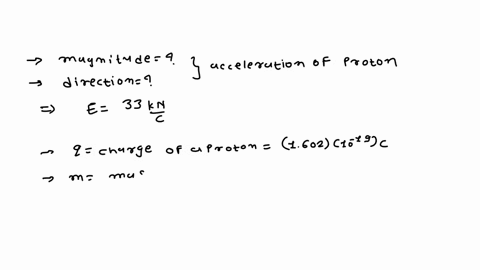 → magnitude = ?
→ direction = ? } acceleration of proton
⇒ E = 33 kN/C
→ q = charge of a proton = (1.602)(10^-19)C
→ m = mas